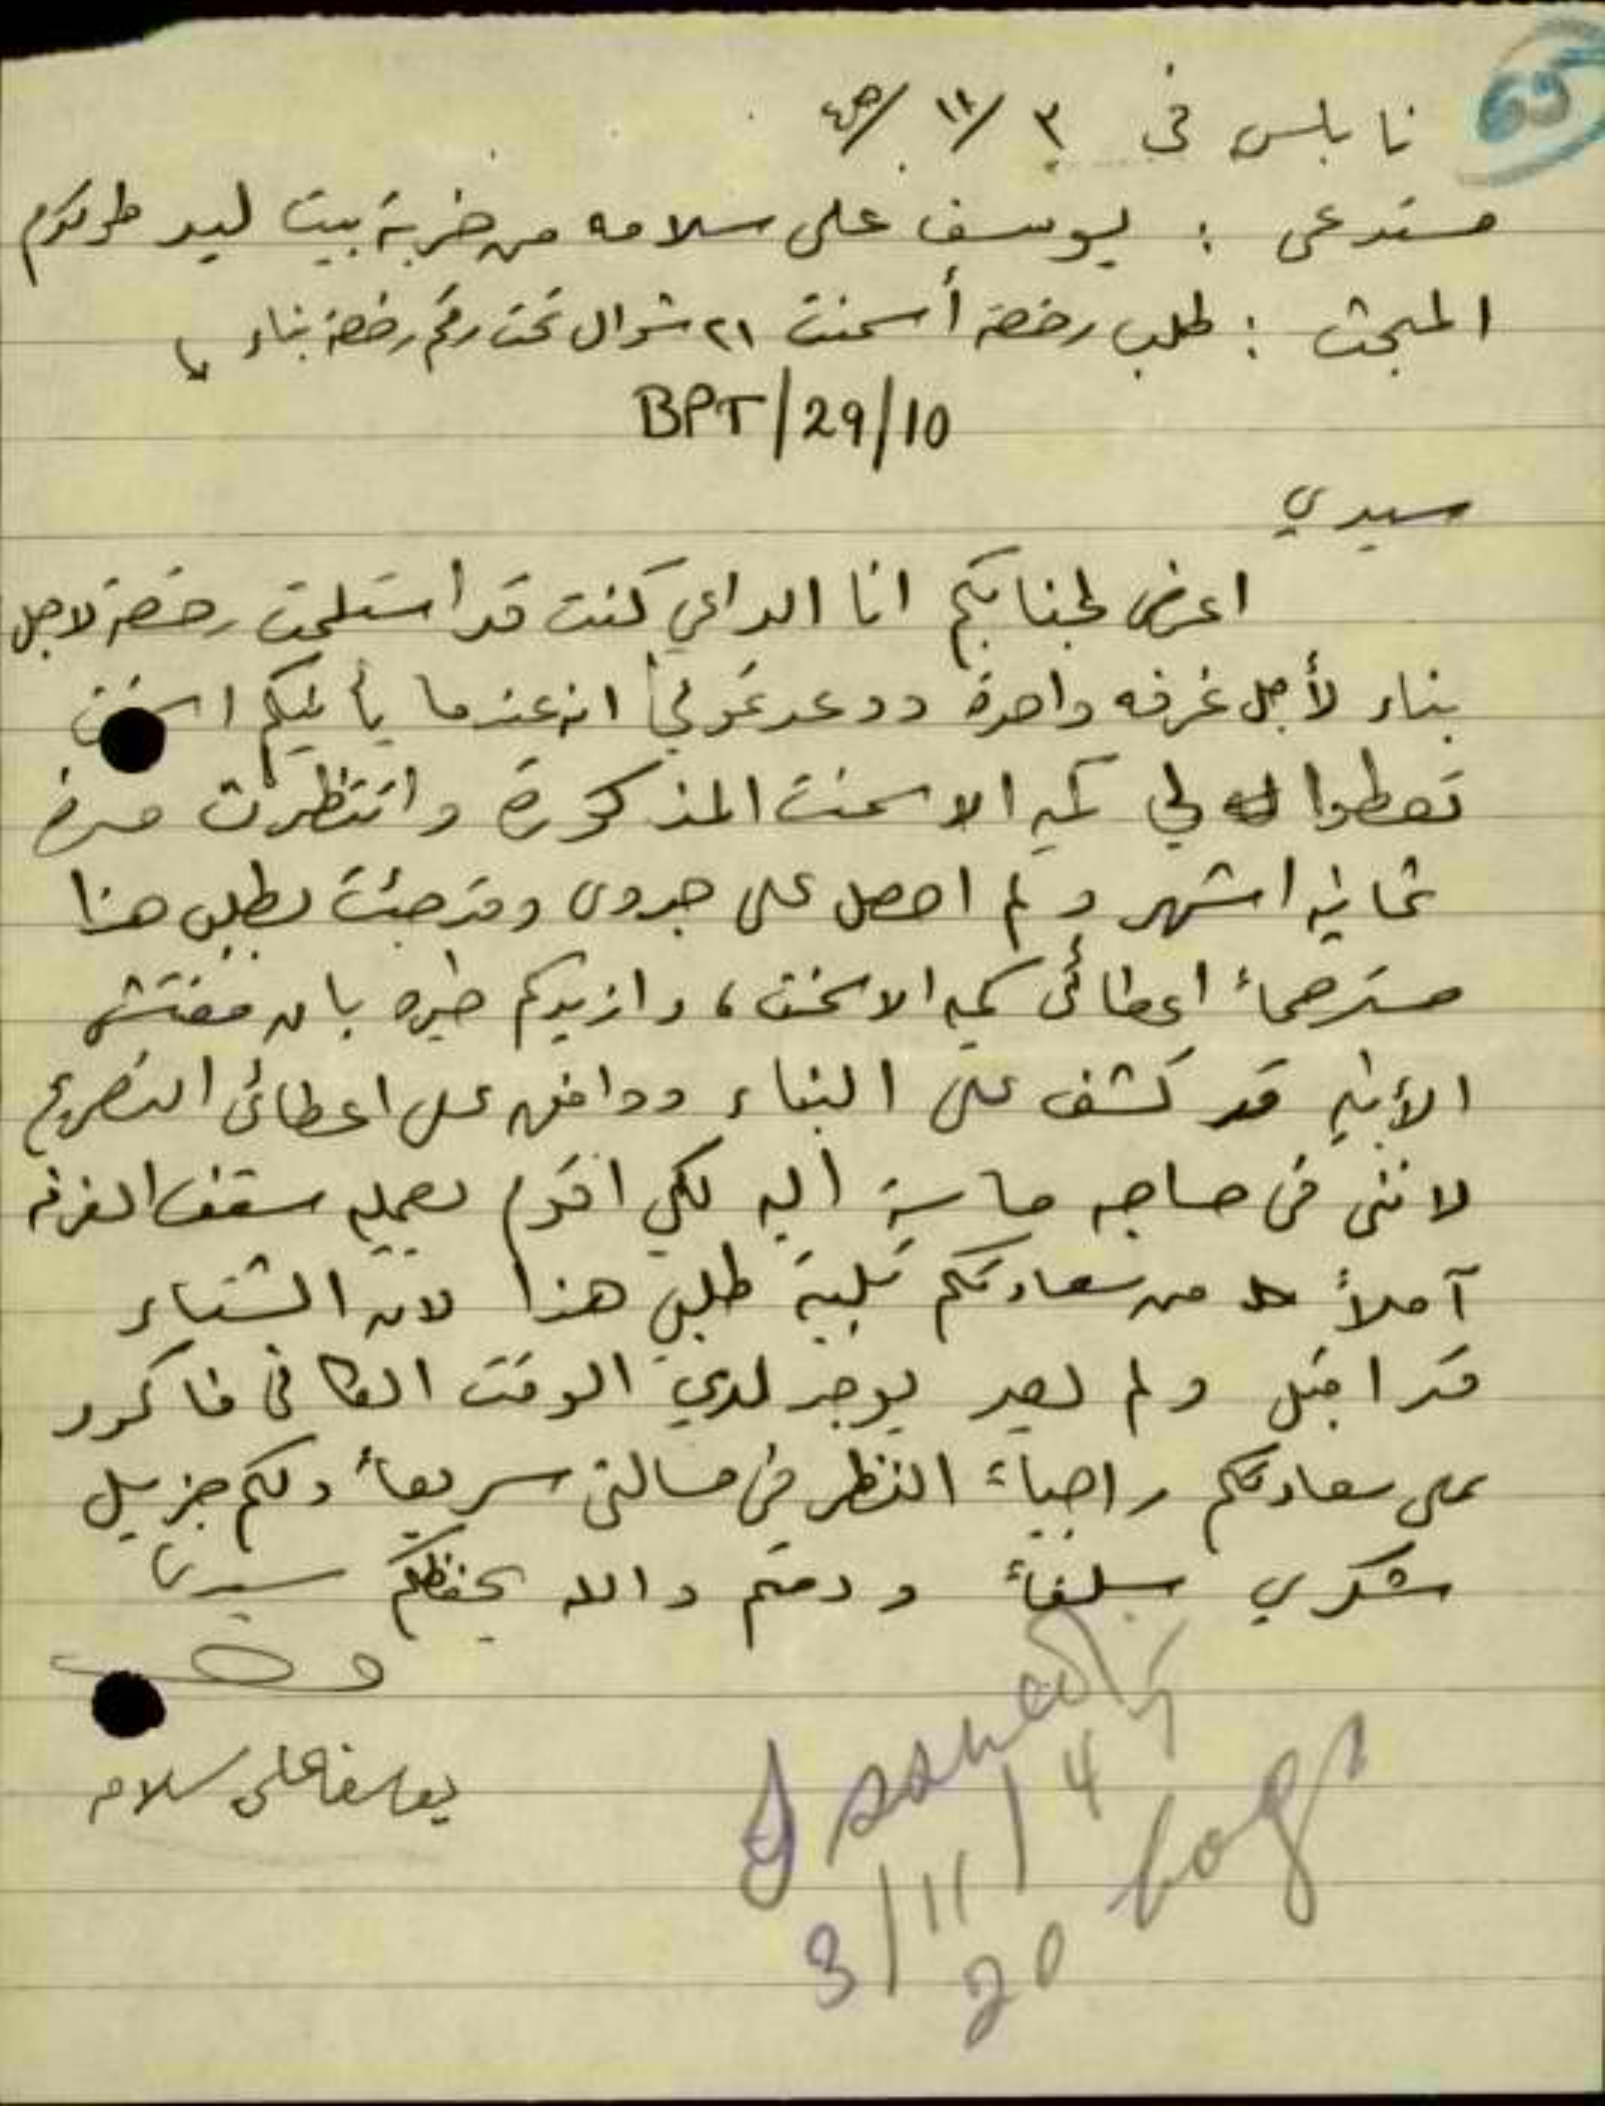 69
نابلس في ٣/ ١١/ ٤٥
مستدعى : يوسف على سلامه من خربة بيت ليد طولكرم
المبحث : طلب رخصة أسمنت ٢١ شوال تحت رقم رخصة بناء
BPT/29/10
سيدي
اعرض لجنابكم انا الداعي كنت قد استلمت رخصة لاجل
بناء لأجل غرفه واحدة ووعدتموني انه عندما يأتيكم اسمنت
تعطوا لي كمية الاسمنت المذكورة وانتظرت مدة
ثمانية اشهر ولم احصل على جدوى وقد جئت بطلبي هذا
مسترحماً اعطائى كمية الاسمنت، وازيدكم خبره بان مفتش
الأبنية قد كشف على البناء ووافق على اعطائى التصريح
لاننى في حاجه ماسة اليه لكي اقوم بعملية سقف الغرفه
آملاً من سعادتكم تلبية طلبي هذا لان الشتاء
قد اقبل ولم يعد يوجد لدي الوقت الكافى فاكرر
على سعادتكم راجياً النظر في مسالتى سريعاً ولكم جزيل
شكري سلفاً ودمتم والله يحفظكم سيدي
يوسف على سلامه
Issued
3/11/4
20 bags